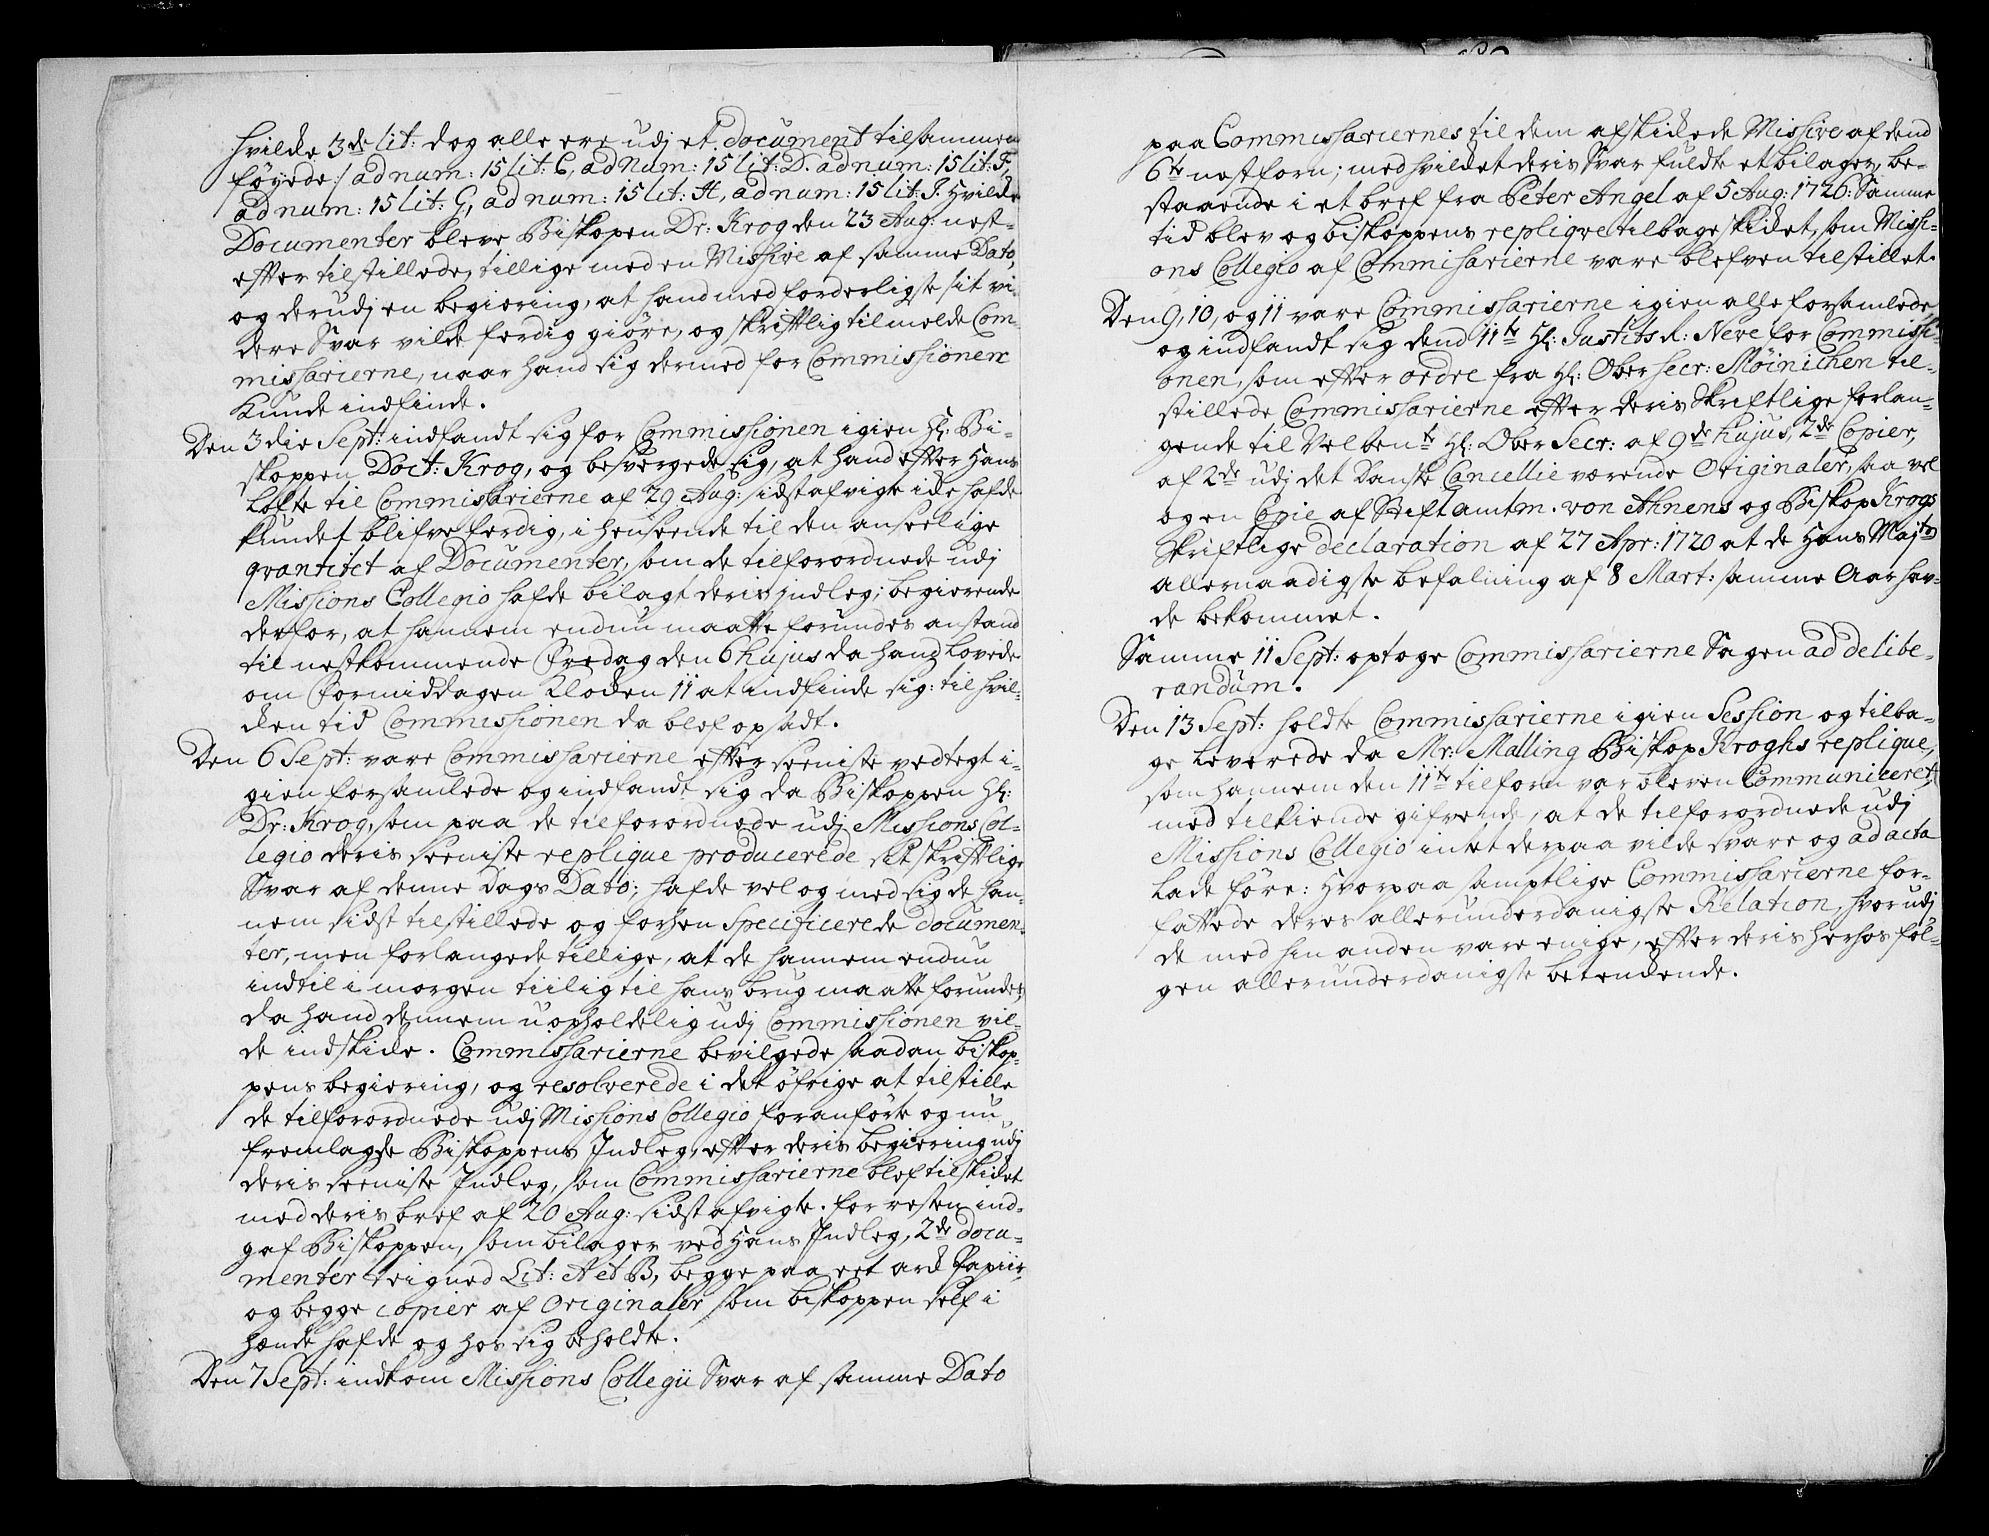 hvilcke 3de lit: dog alle ere udj et document tilsammen
föyede:/ ad num: 15 lit: C, ad Num: 15 lit: D. ad num: 15 lit: F,
ad num: 15 lit: G, ad num: 15 lit: H, ad num: 15 lit: I. Hvilcke
Documenter bleve Biskopen Dr: Krog den 23 Aug: nest-
effter tilstillede, tillige med en Missive af samme Dato,
og derudj en begiering, at hand med forderligste sit vi-
dere Svar vilde ferdig giöre, og skriftlig tilmelde Com-
missarierne, naar hand sig dermed for Commissionen
Kunde indfinde.
Den 3die Sept: indfandt sig for Commissionen igien Hr: Bi-
skoppen Doct: Krog, og besvergede sig, at hand effter Hans
Löfte til Commissarierne af 29 Aug: sidstafvigte icke hafde
kundet blifve ferdig, i henseende til den anseelige
qvantitet af Documenter, som de tilforordnede udj
Missions Collegio hafde bilagt deris indleg; begierende
derfor, at hannem endnu maatte forundes anstand
til nestkommende Fredag den 6 hujus da hand lovede
om Formiddagen Klocken 11 at indfinde sig: til hvil-
cken tid Commissionen da blef opsadt.
Den 6 Sept: vare Commissarierne effter seeniste vedtegt i-
gien forsamlede og indfandt sig da Biskoppen Hr:
Dr: Krog, som paa de tilforordnede udj Missions Col-
legio deris seeniste replique producerede sit skriftlige
Svar af denne dags Dato; hafde vel og med sig de han-
nem sidst tilstillede og forhen Specificerede documen-
ter, men forlangede tillige, at de hannem endnu
indtil i morgen tiilig til hans brug maatte forundes,
da hand dennem uopholdelig udj Commissionen vil-
de indskicke. Commissarierne bevilgede saadan biskop-
pens begiering, og resolverede i det öfrige at tilstille
de tilforordnede udj Missions Collegio foranförte og nu
fremlagde Biskoppens Indleg, effter deris begiering udj
deris seeniste Indleg, som Commissarierne blef tilskicket
med deris bref af 20 Aug: sidstafvigte. for resten ind-
gaf Biskoppen, som bilager ved Hans Indleg, 2de docu-
menter teigned Lit: A et B, begge paa eet arck Papiir,
og begge copier af Originaler som biskoppen self i
hænde hafde og hos sig beholdte.
Den 7 Sept: indkom Missions Collegii Svar af samme Dato
paa Commissariernes til dem afskickede Missive af dend
6te nestforn; med hvilcket deris Svar fuldte et bilager, be-
staaende i et bref fra Peter Angel af 5 Aug: 1726: Samme
tid blev og biskoppens replique tilbageskicket, som Missi-
ons Collegio af Commissarierne vare blefven tilstillet.
Den 9, 10, og 11 vare Commissarierne igien alle forsamlede,
og indfandt sig dend 11te Hr: Justits R: Neve for Commissi-
onen, som effter ordre fra Hr: Ober Secr: Möinichen til-
stillede Commissarierne effter deris Skriftlige forlan-
gende til Velbente Hr: Ober Secr: af 9de hujus, 2de Copier,
af 2de udj det Danske Cancellie værende Originaler, saa vel
og en Copie af Stiftamtm. von Ahnens og Biskop Krogs
Skriftlige declaration af 27 Apr: 1720 at de Hans Majts
allernaadigste befalning af 8 Mart: samme Aar hav-
de bekommet.
Samme 11 Sept: optoge Commissarierne Sagen ad delibe-
randum.
Den 13 Sept: holdte Commissarierne igien Session og tilba-
ge leverede da Mr: Malling Biskop Kroghs replique,
som hannem den 11te tilforn var bleven Communiceret,
med tilkiende gifvende, at de tilforordnede udj
Missions Collegio intet derpaa vilde svare og ad acta
lade före: Hvorpaa samptlige Commissarierne for-
fattede deres allerunderdanigste Relation, hvorudj
de med hin anden vare enige, effter deris herhos föl-
gen allerunderdanigste betenckende.